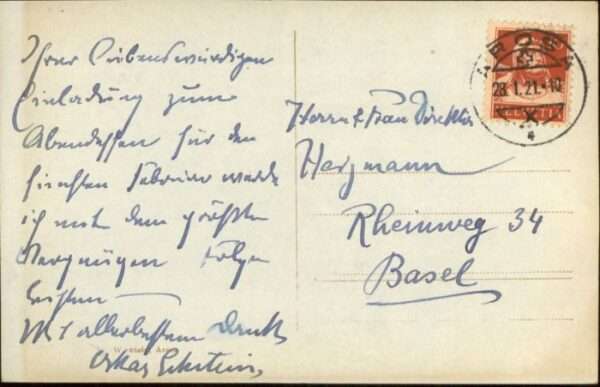 Ihrer liebenswürdigen
Einladung zum
Abendessen für den
fünften Februar werde
ich mit dem größten
Vergnügen Folge
leisten
Mit allerbestem Dank
Oskar Eckstein
AROSA
28.1.21.-10
HELVETIA
Herrn & Frau Direktor
Herzmann
Rheinweg 34
Basel